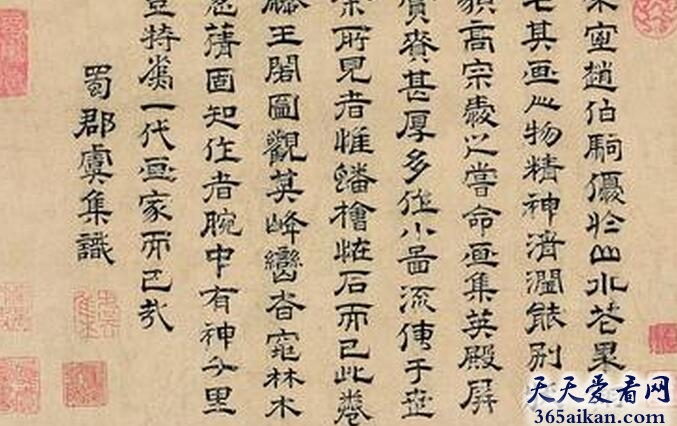 宋室趙伯駒優於山水花果
毛其画人物精神清潤能別
貌高宗愛之嘗命画集英殿屏
賞賚甚厚多作小啚流傳于世
余所見者惟蟠檜怪石而已此卷
滕王閣圖觀其峰巒杳窕林木
葱蒨固知作者腕中有神千里
豈特為一代画家而已哉
蜀郡虞集識
天天爱看网
365aikan.com